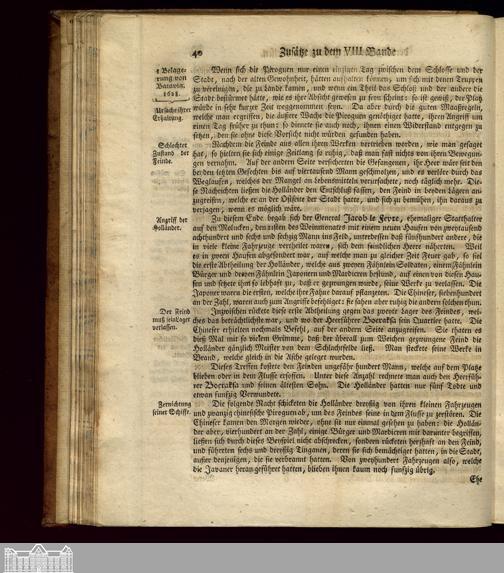 40 Zusätze zu dem VIII Bande
1 Belage-
rung von
Batavia.
1628.
Ursache ihrer
Erhaltung.
Wenn sich die Piroguen nur einen einzigen Tag zwischen dem Schlosse und der
Stadt, nach der alten Gewohnheit, hätten aufhalten können, um sich mit denen Truppen
zu vereinigen, die zu Lande kamen, und wenn ein Theil das Schloß und der andere die
Stadt bestürmet hätte, wie es ihr Absicht gewesen zu seyn scheint: so ist gewiß, der Platz
würde in sehr kurzer Zeit weggenommen seyn. Da aber durch die guten Maaßregeln,
welche man ergriffen, die äußere Wache die Piroguen genöthiget hatte, ihren Angriff um
einen Tag früher zu thun: so konnte sie auch noch, ihnen einen Widerstand entgegen zu
setzen, den sie ohne diese Vorsicht nicht würden gefunden haben.
Schlechter
Zustand der
Feinde.
Nachdem die Feinde aus allen ihren Werken vertrieben worden, wie man gesaget
hat, so hielten sie sich einige Zeitlang so ruhig, daß man fast nichts von ihren Bewegun-
gen vernahm. Auf der andern Seite versicherten die Gefangenen, ihr Heer wäre seit den
bey den letzten Gefechten bis auf viertausend Mann geschmolzen, und es verlöre durch das
Weglaufen, welches der Mangel an Lebensmitteln verursachete, noch täglich mehr. Die-
se Nachrichten ließen die Holländer den Entschluß fassen, den Feind in beyden Lägern an-
zugreifen, welche er an der Ostseite der Stadt hatte, und sich zu bemühen, ihn daraus zu
verjagen, wenn es möglich wäre.
Angriff der
Holländer.
Zu diesem Ende begab sich der General Jacob le Fevre, ehemaliger Statthalter
auf den Molucken, den ersten des Weinmonates mit einem neuen Haufen von zweytausend
achthundert und sechs und sechzig Mann ins Feld, unterdessen daß fünfhundert andere, die
in viele kleine Fahrzeuge vertheilet waren, sich dem feindlichen Heere näherten. Weil
es in zween Haufen abgesondert war, auf welche man zu gleicher Zeit Feuer gab, so fiel
die erste Abtheilung der Holländer, welche aus zweyen Fähnlein Soldaten, einem Fähnlein
Bürger und dreyen Fähnlein Japonern und Mardickern bestund, auf einen von diesen Hau-
fen und setzete ihm so lebhaft zu, daß er gezwungen wurde, seine Werke zu verlassen. Die
Japoner waren die ersten, welche ihre Fahne darauf pflanzeten. Die Chineser, siebenhundert
an der Zahl, waren auch zum Angriffe befehliget: sie sahen aber ruhig die andern solchen thun.
Der Feind
muß sein Lager
verlassen.
Inzwischen rückete diese erste Abtheilung gegen das zweyte Lager des Feindes, wel-
ches das beträchtlichste war, und wo der Heerführer Bocraksa sein Quartier hatte. Die
Chineser erhielten nochmals Befehl, auf der andern Seite anzugreifen. Sie thaten es
dieß Mal mit so vielem Grimme, daß der überall zum Weichen gezwungene Feind die
Holländer gänzlich Meister von dem Schlachtfelde ließ. Man steckete seine Werke in
Brand, welche gleich in die Asche geleget wurden.
Dieses Treffen kostete den Feinden ungefähr hundert Mann, welche auf dem Platze
blieben oder in dem Flusse ersoffen. Unter diese Anzahl rechnete man auch den Heerfüh-
rer Bocraksa und seinen ältesten Sohn. Die Holländer hatten nur fünf Todte und
etwan funfzig Verwundete.
Zernichtung
seiner Schiffe.
Die folgende Nacht schicketen die Holländer dreyßig von ihren kleinen Fahrzeugen
und zwanzig chinesische Piroguen ab, um des Feindes seine in dem Flusse zu zerstören. Die
Chineser kamen den Morgen wieder, ohne sie nur einmal gesehen zu haben: die Hollän-
der aber, vierhundert an der Zahl, einige Bürger und Mardickern mit darunter begriffen,
ließen sich durch dieses Beyspiel nicht abschrecken, sondern rücketen herzhaft an den Feind,
und führeten sechs und dreyßig Tinganen, deren sie sich bemächtiget hatten, in die Stadt,
außer denjenigen, die sie verbrannt hatten. Von zweyhundert Fahrzeugen also, welche
die Javaner heran geführet hatten, blieben ihnen kaum noch funfzig übrig.
Ehe